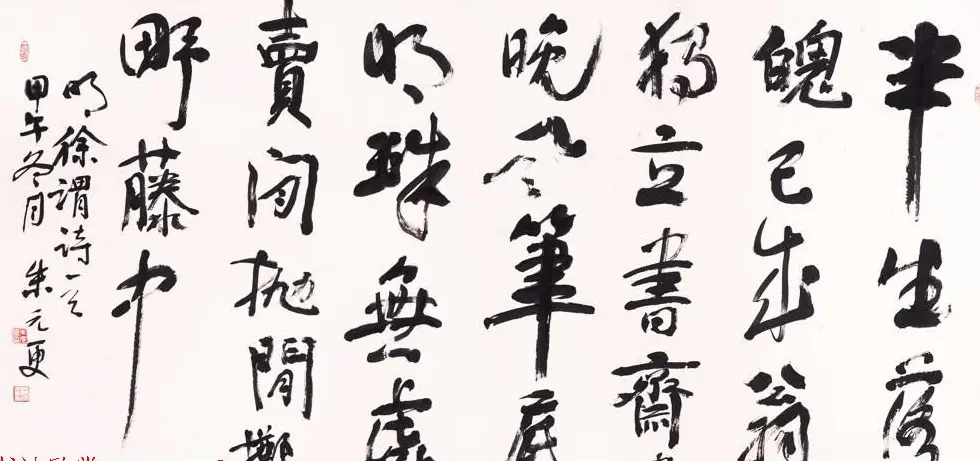 半生落
魄已成翁
獨立書齋
晚风筆底
明珠無處
賣閑抛閒擲
野藤中
明徐謂詩一首
甲午冬月 朱元更